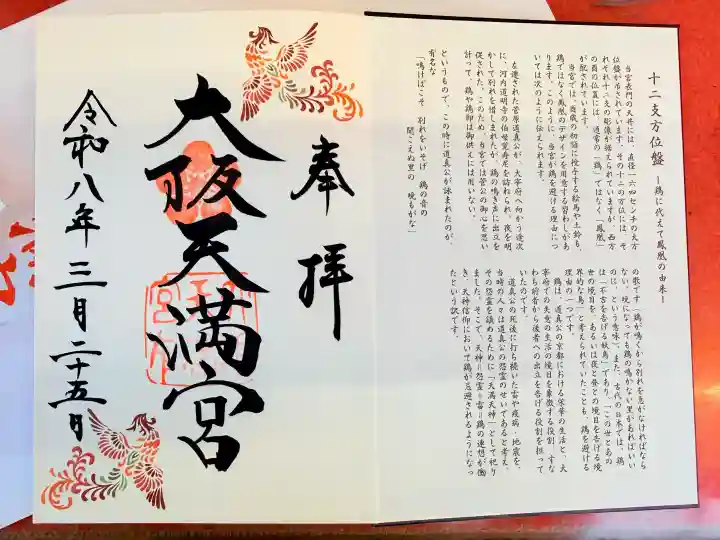 十二支方位盤 ー鶏に代えて鳳凰の由来ー
当宮表門の天井には、直径一六四センチの大方
位盤が吊されています。その十二の方位には、そ
れぞれ十二支の彫像が据えられていますが、西方
の酉の位置には、通常の「鶏」ではなく「鳳凰」
が配されています。
当宮では、酉歳の初詣に授与する絵馬や土鈴も、
鶏ではなく鳳凰のデザインを用意する習わしがあ
ります。このように、当宮が鶏を避ける理由につ
いては次のように伝えられます。
左遷された菅原道真公が、太宰府へ向かう途次
に、河内道明寺の伯母覚寿尼を訪ねられ、夜を明
かして別れを惜しまれたが、鶏の鳴き声に出立を
促された。このため、当宮では菅公の御心を思い
計って、鶏や鶏卵は御供えには用いない、
というもので、この時に道真公が詠まれたのが、
有名な
「鳴けばこそ 別れをいそげ 鶏の音の
聞こえぬ里の 暁もがな」
の歌です（鶏が鳴くから別れを急がなければなら
ない、暁になっても鶏の鳴かない里があればいい
のに、という意味）。また、古代の日本では、鶏
は「不吉を告げる妖鳥」であり、「この世とあの
世の境目を、あるいは夜と昼との境目を告げる境
界的な鳥」と考えられていたことも、鶏を避ける
理由の一つです。
鶏は、道真公の京都における栄華の生活と、太
宰府での失意の生活の境目を象徴する役割、すな
わち前者から後者への出立を告げる役割を担って
いたのです。
道真公の死後に打ち続いた雷や疫病・地震を、
当時の人々は道真公の怨霊のせいであると考え、
その怨霊を鎮めるために「天満天神」として祀り
ました。そこで、天神＝怨霊＝雷＝鶏の連想が働
き、天神信仰において鶏が忌避されるようになっ
たという訳です。
奉拝
大阪天満宮
令和八年三月二十五日